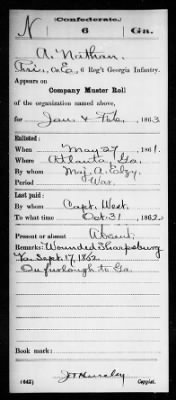 N (Confederate.) 6 Ga.
A. Nathan.
Pri., Co. E., 6 Reg't Georgia Infantry.
Appears on
Company Muster Roll
of the organization named above,
for Jan & Feb, 1863.
Enlisted:
When May 27, 1861.
Where Atlanta, Ga.
By whom Maj. A.
Period War.
Last paid:
By whom Capt. West.
To what time Oct. 31, 1862.
Present or absent Absent.
Remarks: Wounded Sharpsburg
Sept. 17, 1862
On furlough to Ga.
Book mark:
(642)
Copyist.